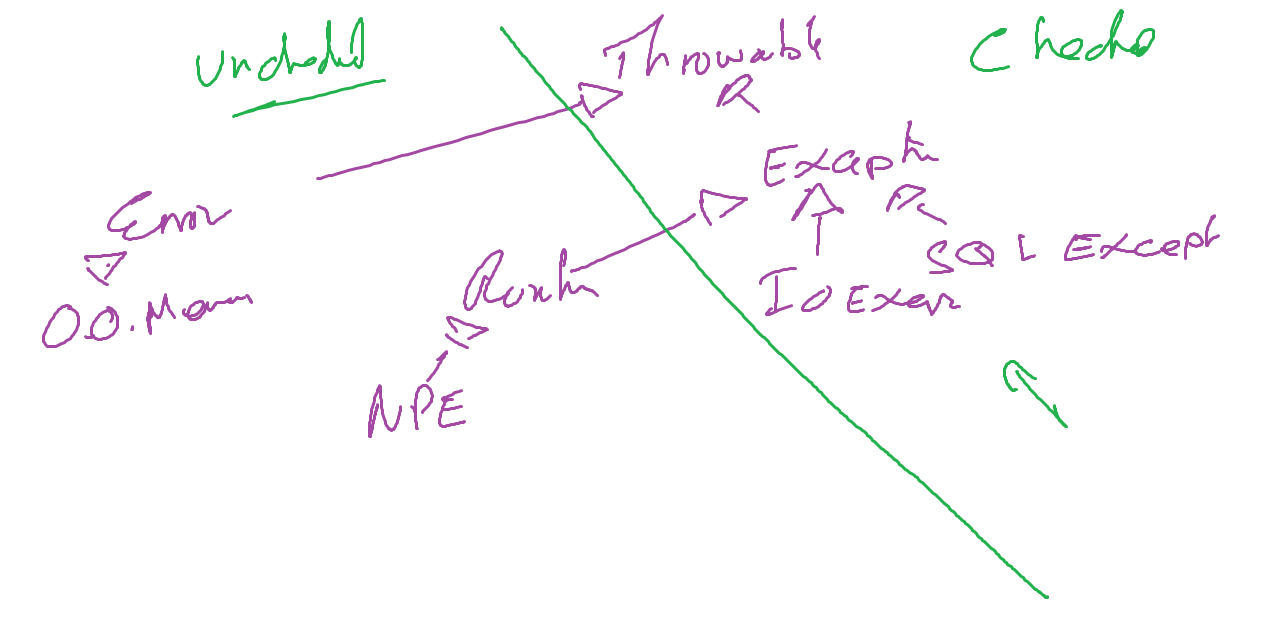 Unchecked
Throwable
Checked
Except
Error
SQL Except
Runtim
IO Excep
O.O.Mem
NPE